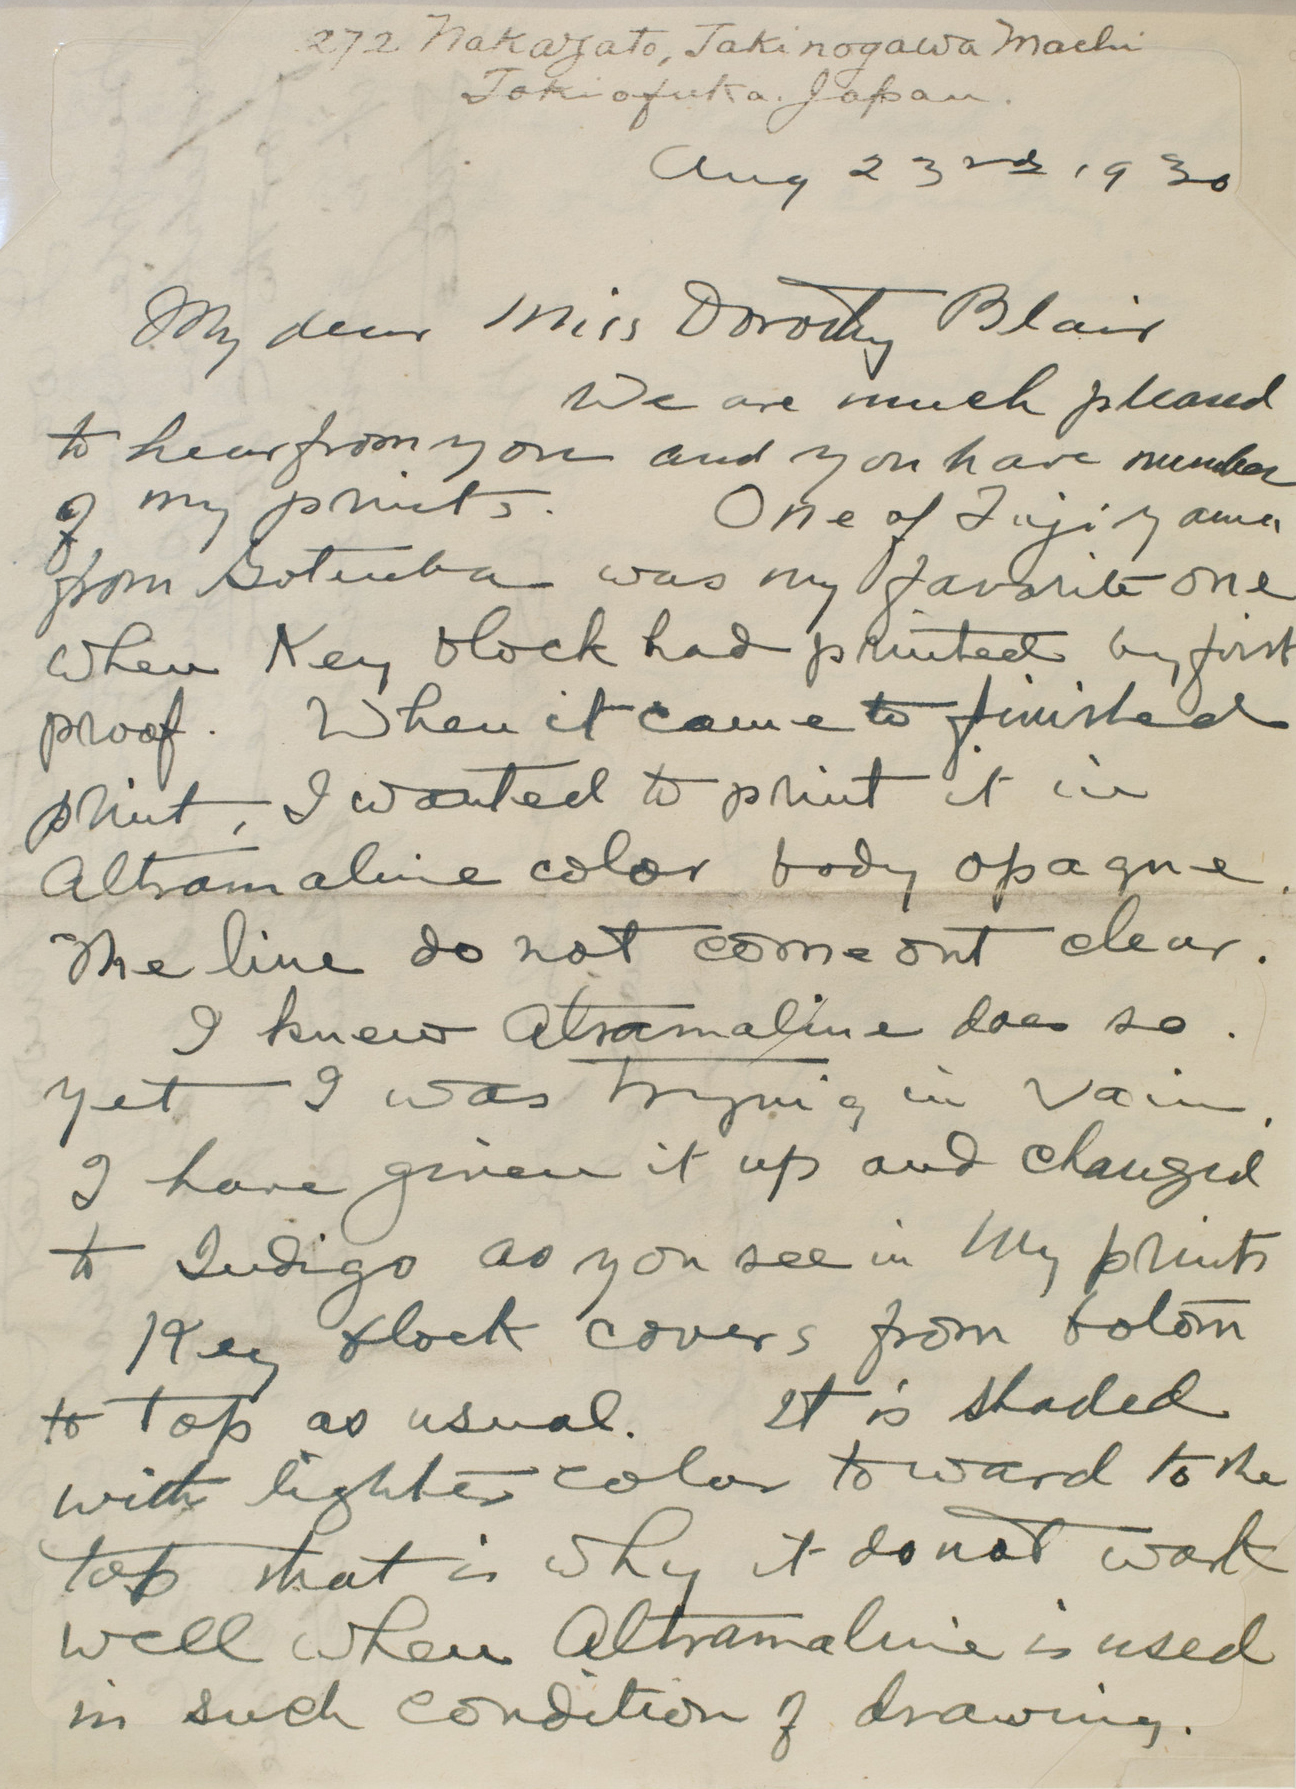 272 Nakazato, Takinogawa Machi
Tokiofuka. Japan.
Aug 23rd, 1930
My dear Miss Dorothy Blair
We are much pleased
to hear from you and you have number
of my prints. One of Fujiyama
from Gotenba was my favorite one
when Key block had printed by first
proof. When it came to finished
print, I wanted to print it in
Altramaline color body opaque.
The line do not come out clear.
I knew Altramaline does so.
yet I was trying in vain.
I have given it up and changed
to Indigo as you see in My prints
Key block covers from botom
to top as usual. It is shaded
with lighter color toward to the
top that is why it do not work
well when Altramaline is used
in such condition of drawing.